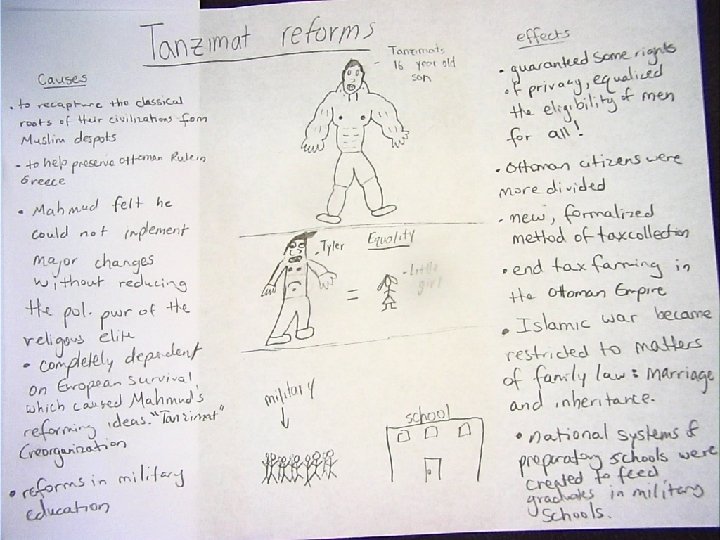 Tanzimat reforms
Causes
• to recapture the classical
roots of their civilizations from
Muslim despots
- to help preserve Ottoman Rule in
Greece
• Mahmud felt he
could not implement
major changes
without reducing
the pol. pwr of the
religous elite
• completely dependent
on European survival,
which caused Mahmud's
reforming ideas. "Tanzimat"
(reorganization
• reforms in military
education
Tanzimat's
16 year old
son
- Tyler
Equality
=
- little
girl
military
school
effects
• guaranteed some rights
of privacy, equalized
the eligibility of men
for all!
• Ottoman citizens were
more divided
- new, formalized
method of tax collection
• end tax farming in
the Ottoman Empire
• Islamic war became
restricted to matters
of family law: Marriage
and inheritance.
• national systems of
preparatory schools were
created to feed
graduates in military
schools.